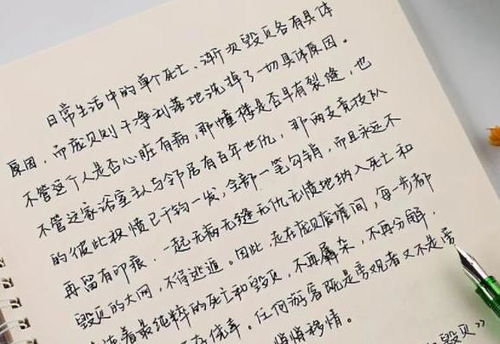 日常生活中的单个死亡、渐次毁灭各有具体
原因。而庞贝则干净利落地洗掉了一切具体原因。
不管这个人是否心脏有病,那幢楼是否早有裂缝,也
不管这家浴室主人与邻居有百年世仇,那两支竞技队
的彼此积愤已千钧一发,全部一笔勾销,而且永远不
再留有印痕,一起无病无缝无仇无愤地纳入死亡和
毁灭的大网,不得逃遁。因此,走在庞贝废墟间,每一步都
着最纯粹的死亡和毁灭,不再羼杂,不再分解,
存侥幸。任何游客既是旁观者又不是旁
悄悄移情。